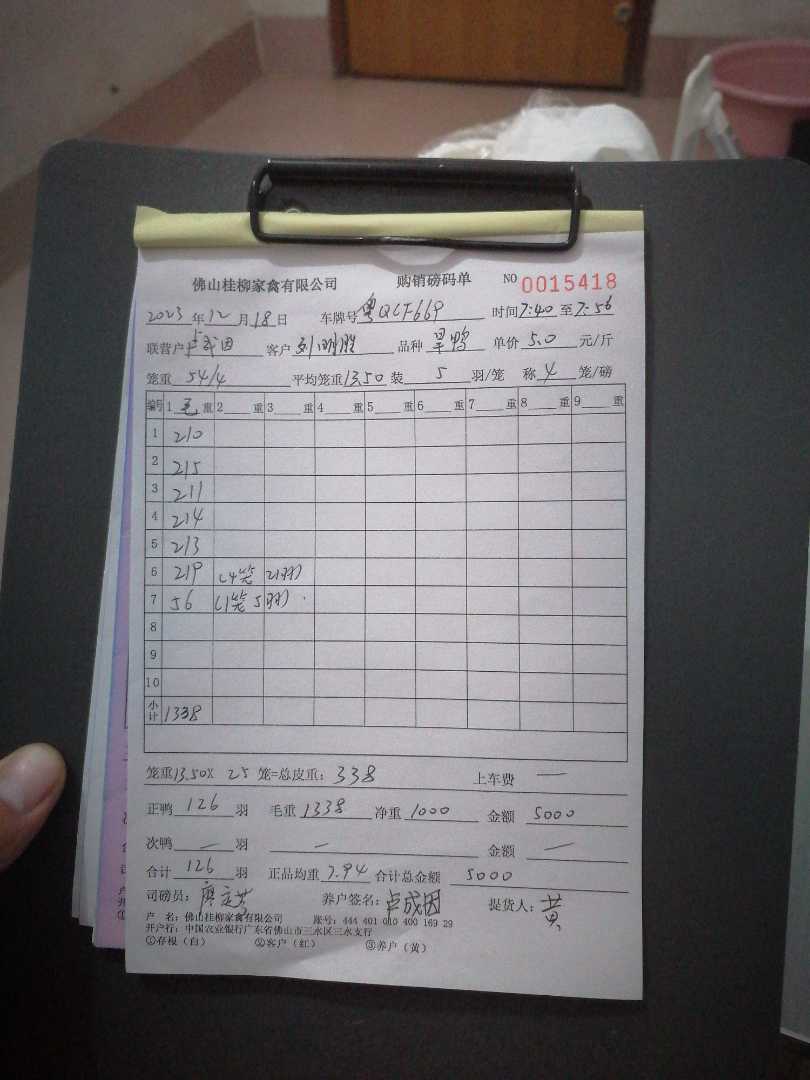 佛山桂柳家禽有限公司 购销磅码单 NO 0015418
2023年12月18日 车牌号粤QCF669 时间7:40至7:56
联营户卢成因 客户刘明胜 品种旱鸭 单价5.0元/斤
笼重54/4 平均笼重13.50装5羽/笼 称4笼/磅
编号 1毛重 2重 3重 4重 5重 6重 7重 8重 9重
1 210
2 215
3 211
4 214
5 213
6 219 (4笼 21羽)
7 56 (1笼 5羽)
8
9
10
小计 1338
笼重13.50X 25笼=总皮重:338 上车费 —
正鸭126羽 毛重1338净重1000 金额5000
次鸭—羽 — 金额—
合计126羽 正品均重7.94合计总金额5000
司磅员: 养户签名:卢成因 提货人:黄
户 名:佛山桂柳家禽有限公司 账号:444 401 010 400 169 29
开户行:中国农业银行广东省佛山市三水区三水支行
①存根(白) ②客户(红) ③养户(黄)